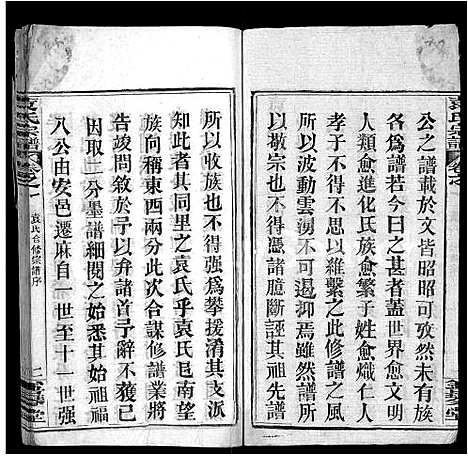 袁氏宗譜
公之譜載於文皆昭昭可攷然未有族
各為譜若今日之甚者蓋世界愈文明
人類愈進化氏族愈繁子姓愈熾仁人
孝子不得不思以維繫之此修譜之風
所以波動雲湧不可遏抑焉雖然譜所
以敬宗也不可慿諸臆斷誣其祖先譜
所以收族也不得強為攀援淆其支派
矧此又為其同里之袁氏乎袁氏邑南望
族向稱東西兩分此次合謀修譜業將
告竣問敘於予以弁諸首予辭不獲已
因取二分墨譜細閱之始悉其始祖福
八公由安邑遷麻自一世至十一世強
袁氏宗譜
卷之一
袁氏合修宗譜序